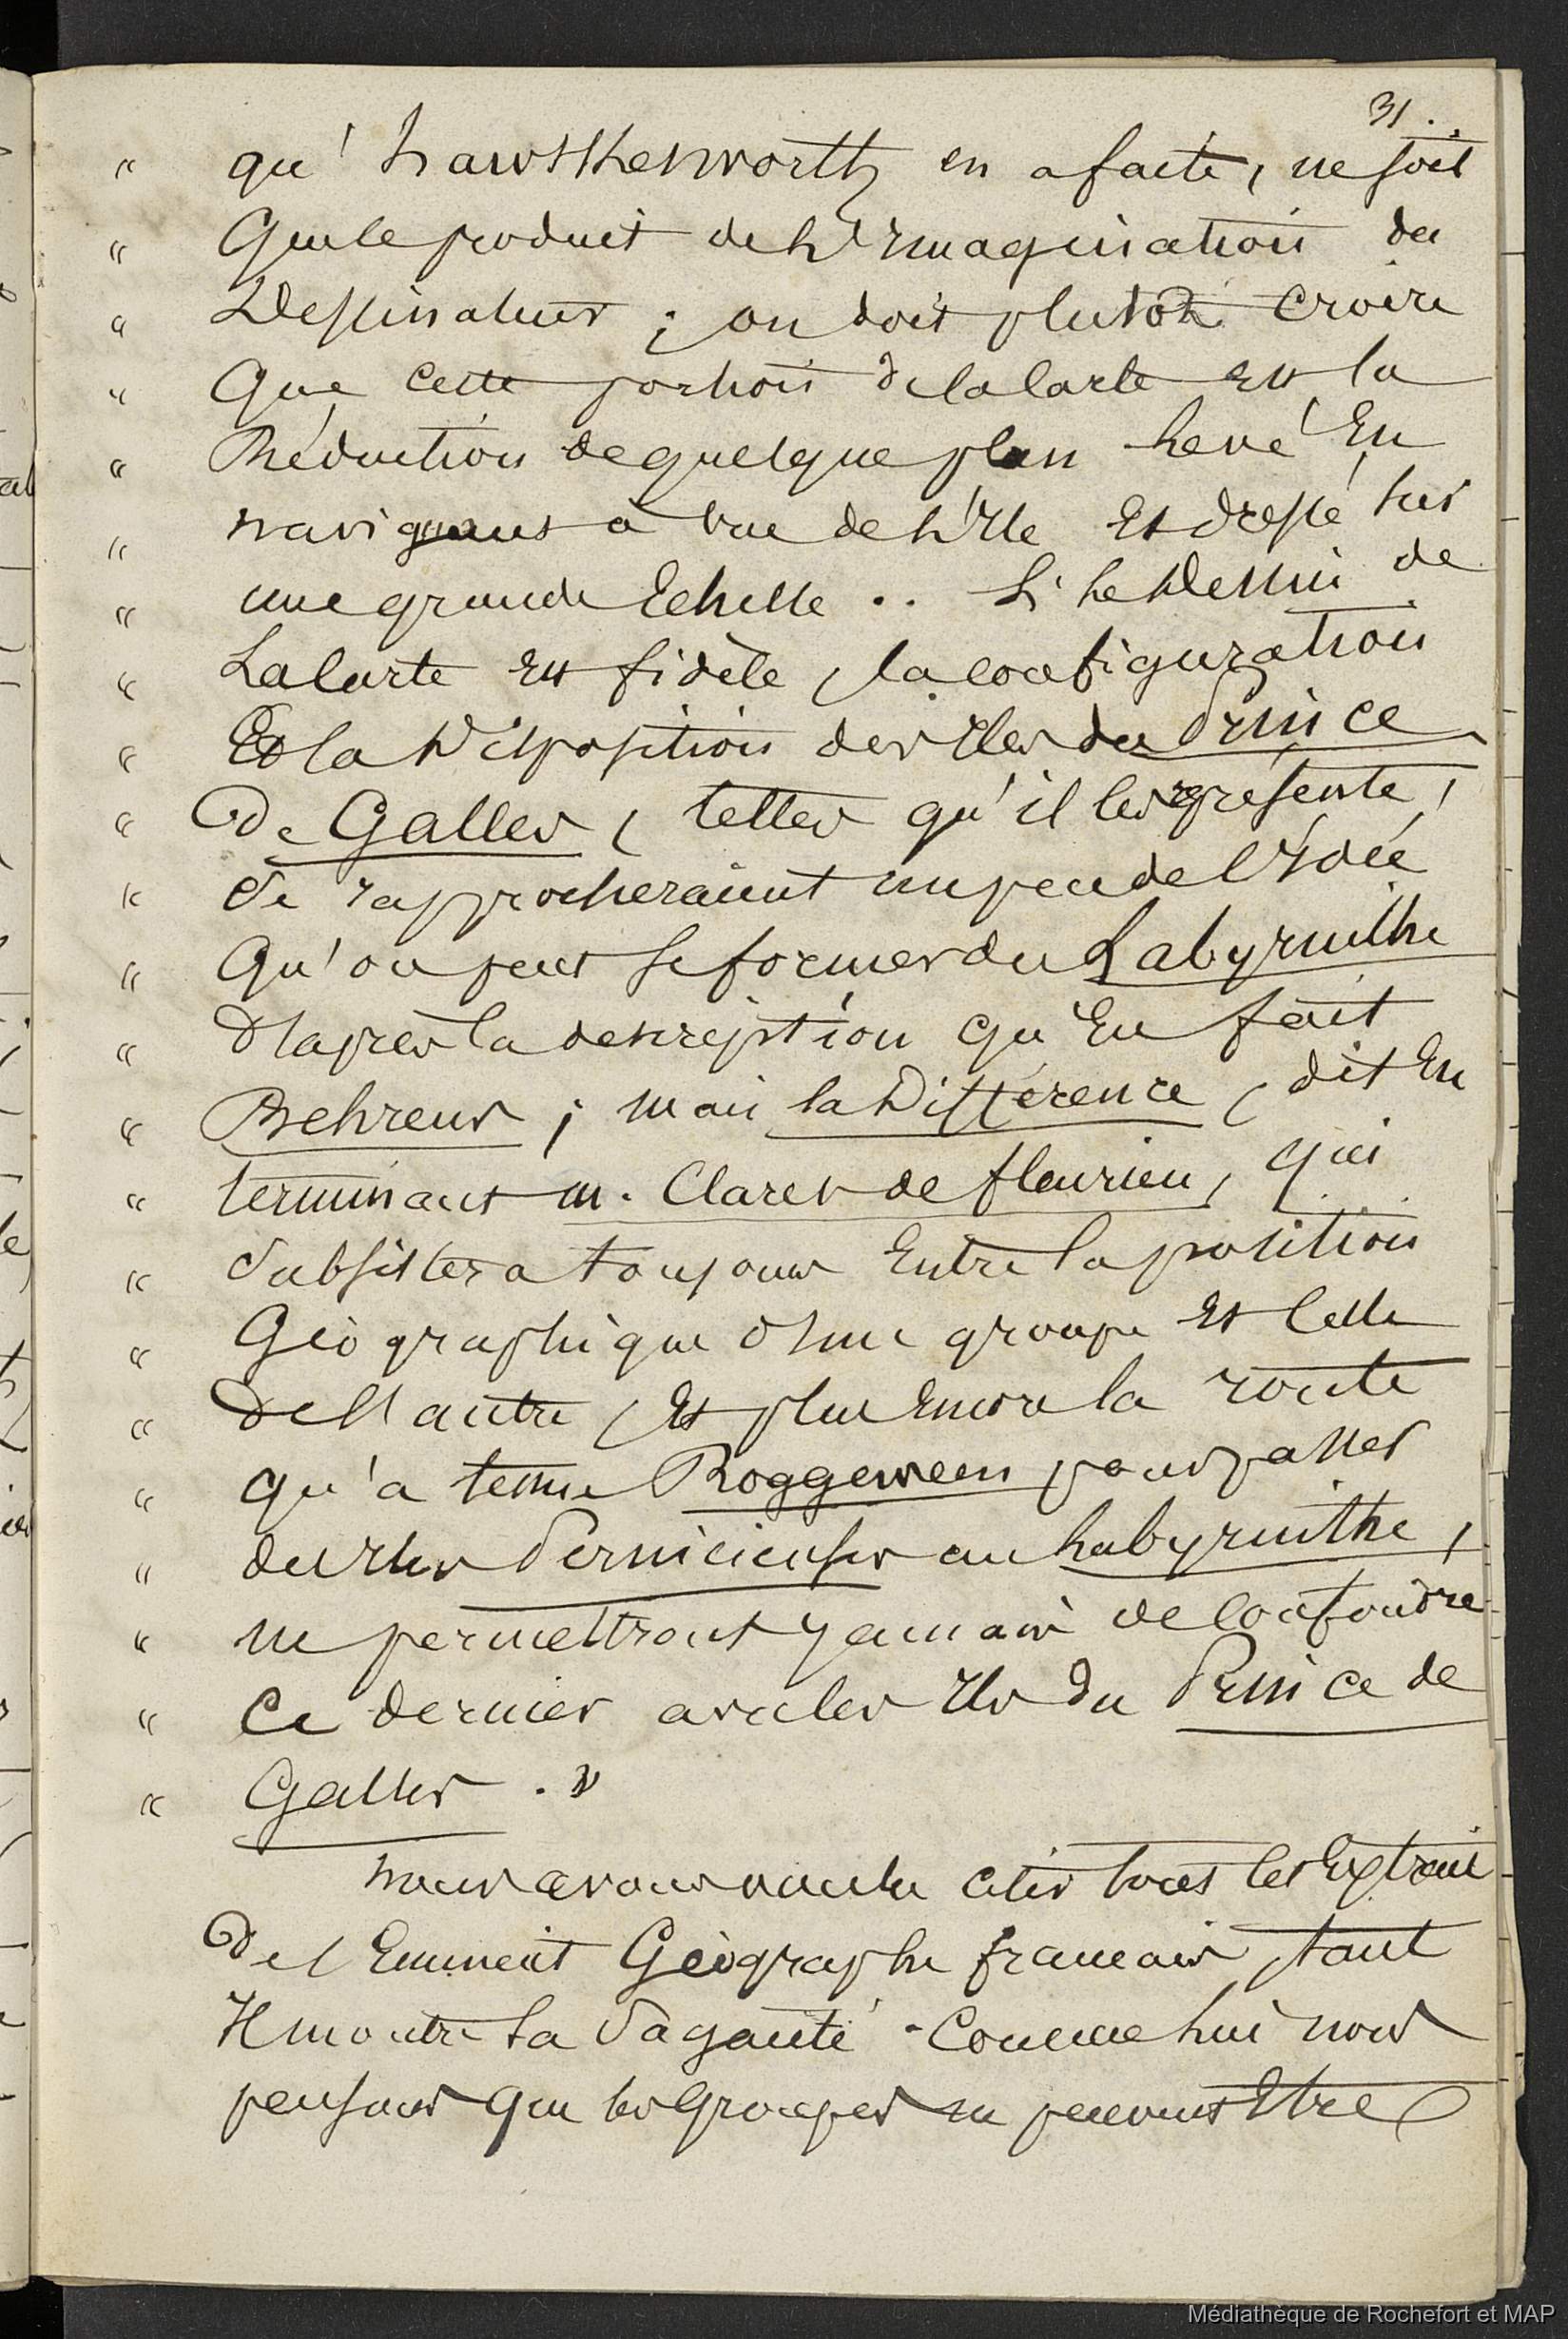 31.
" qu'hawsthenworth en a faite, ne soit
" Que le produit de l'Imagination du
" Dessinateur ; on doit plutôt Croire
" Que Cette portion de la Carte Est la
" Réduction de quelque plan levé En
" naviguant à vue de l'Ile Et dressé sur
" une grande Echelle .. Si le Dessin de
" La Carte Est fidèle, la configuration
" Et la Disposition des Iles du Prince
" De Galles, telles qu'il les représente,
" Se rapprocheraient un peu de l'Idée
" Qu'on peut se former du Labyrinthe
" D'après la description qu'En fait
" Behrens ; mais la Différence, dit En
" terminant m. Claret de fleurieu, qui
" Subsistera toujours Entre la position
" Géographique d'une groupe Et Celle
" De l'autre, Et plus Encore la route
" qu'a tenue Roggeween pour passer
" des Iles Pernicieuses au Labyrinthe,
" ne permettront jamais de Confondre
" Ce dernier avec les Iles du Prince de
" Galles . "
nous avons voulu Citer tous les Extraits
De l'Eminent Géographe français, tant
Il montre sa Sagacité . Comme lui nous
pensons que les Groupes ne peuvent Etre
Médiathèque de Rochefort et MAP